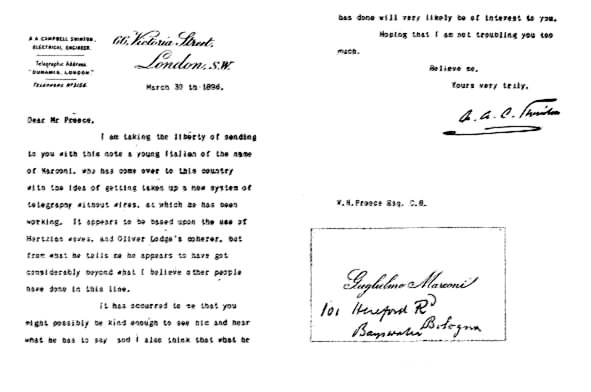 A A CAMPBELL SWINTON,
ELECTRICAL ENGINEER.
Telegraphic Address
"DUNAMIS, LONDON"
TELEPHONE Nº3186.
66, Victoria Street,
London, S.W.
March 30 th 1896.
Dear Mr Preece,
I am taking the liberty of sending
to you with this note a young Italian of the name
of Marconi, who has come over to this country
with the idea of getting taken up a new system of
telegraphy without wires, at which he has been
working. It appears to be based upon the use of
Hertzian waves, and Oliver Lodge's coherer, but
from what he tells me he appears to have got
considerably beyond what I believe other people
have done in this line.
It has occurred to me that you
might possibly be kind enough to see him and hear
what he has to say and I also think that what he
has done will very likely be of interest to you.
Hoping that I am not troubling you too
much.
Believe me,
Yours very truly,
A. A. C. Swinton
W.H.Preece Esq. C.B.
Guglielmo Marconi
101 Hereford Rd
Bayswater Bologna